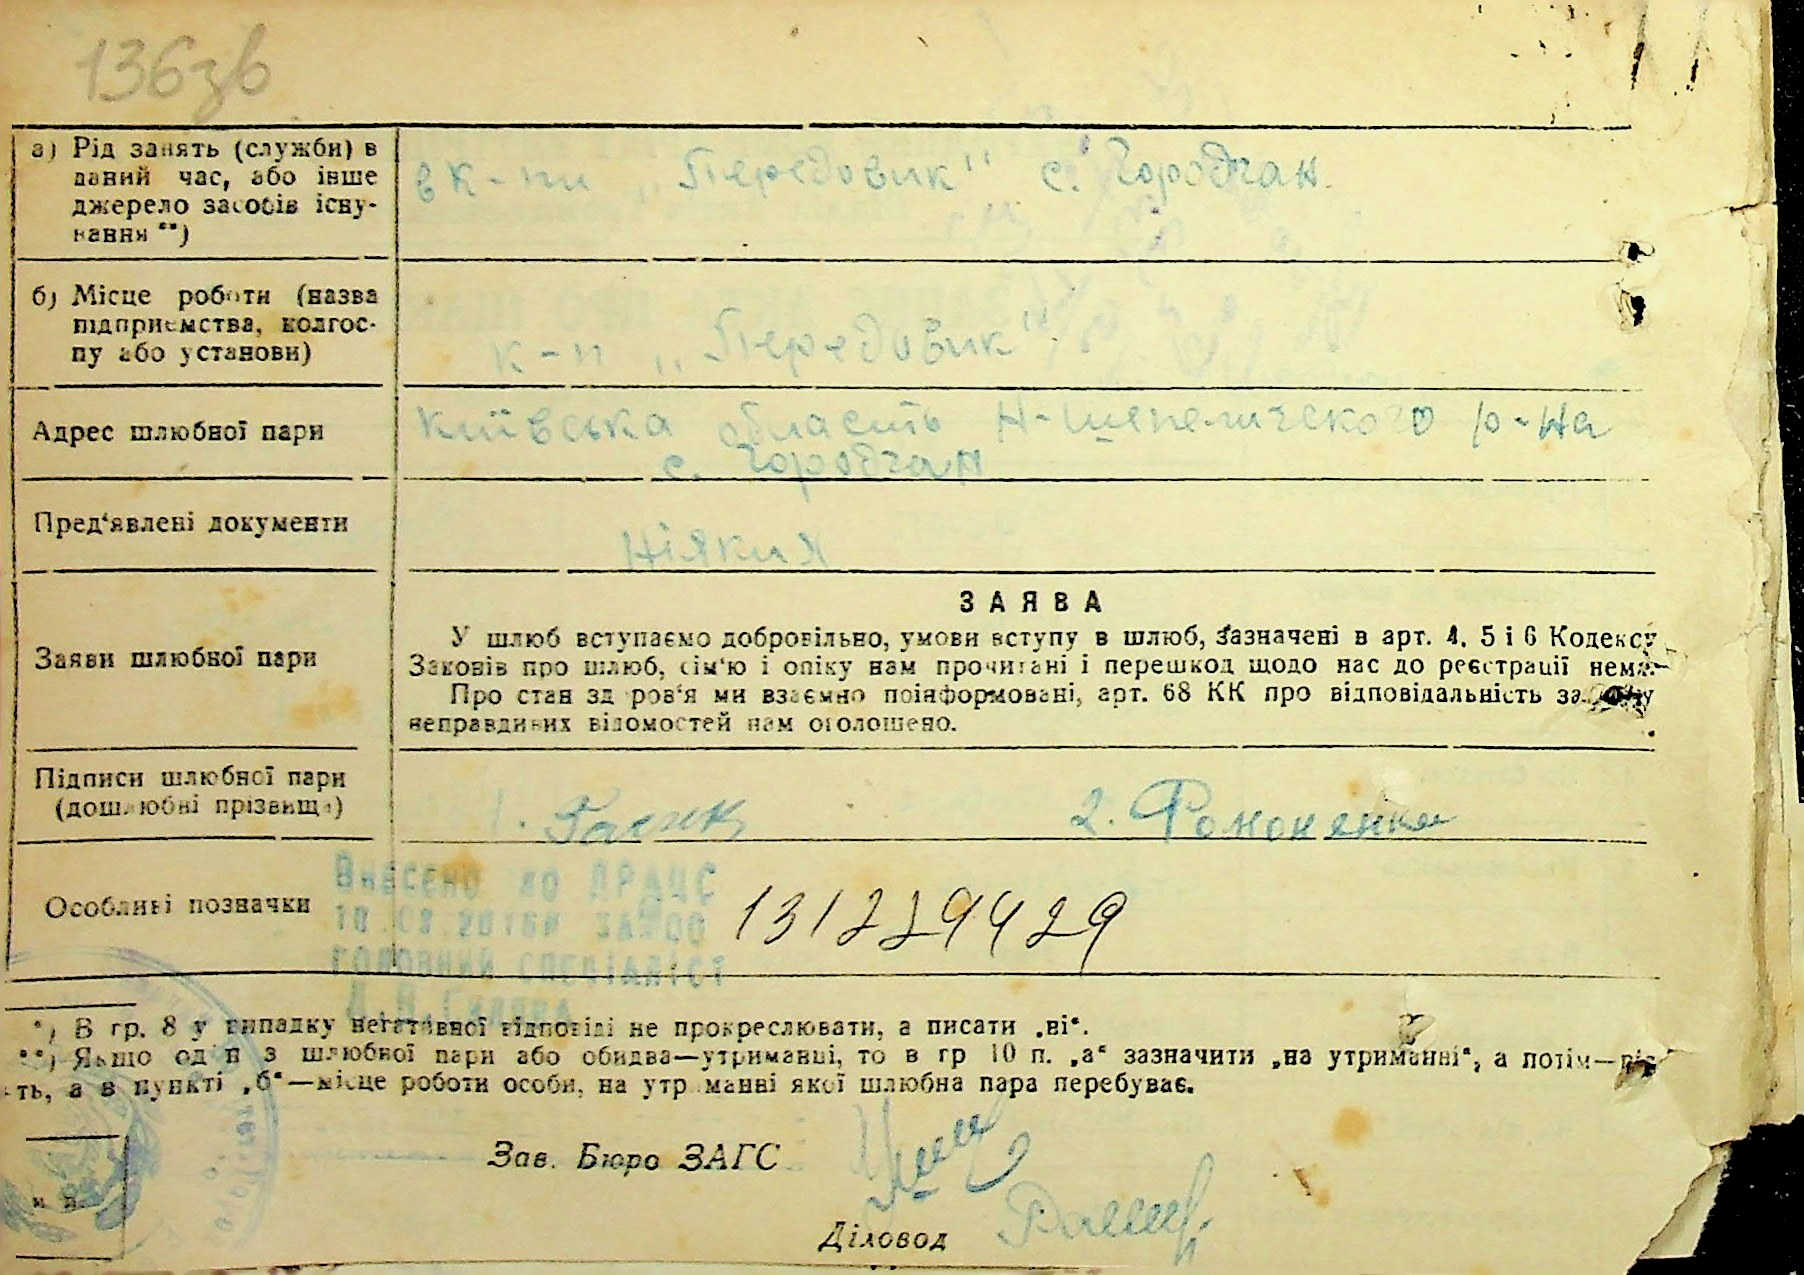 136зв
а) Рід занять (служби) в
даний час, або інше
джерело засобів існу-
вання **)
в к-пи „Передовик" с. Городчан
б) Місце роботи (назва
підприємства, колгос-
пу або установи)
к-п „Передовик"
Адрес шлюбної пари
Київська область Н-Шепеличського р-на
с. Городчан
Пред'явлені документи
Ніяких
Заяви шлюбної пари
ЗАЯВА
У шлюб вступаємо добровільно, умови вступу в шлюб, зазначені в арт. 4, 5 і 6 Кодексу
Законів про шлюб, сім'ю і опіку нам прочитані і перешкод щодо нас до реєстрації нема.
Про стан здоров'я ми взаємно поінформовані, арт. 68 КК про відповідальність за
неправдивих відомостей нам оголошено.
Підписи шлюбної пари
(дошлюбні прізвища)
1.
2. Фоменко
Внесено до ДРАЦС
Особливі позначки
131229429
головний спеціаліст
*) В гр. 8 у випадку негативної відповіді не прокреслювати, а писати „ні".
**) Якщо один з шлюбної пари або обидва—утриманці, то в гр 10 п. „а" зазначити „на утриманні", а потім—
ть, а в пункті „б"—місце роботи особи, на утриманні якої шлюбна пара перебуває.
Зав. Бюро ЗАГС
м. п.
Діловод